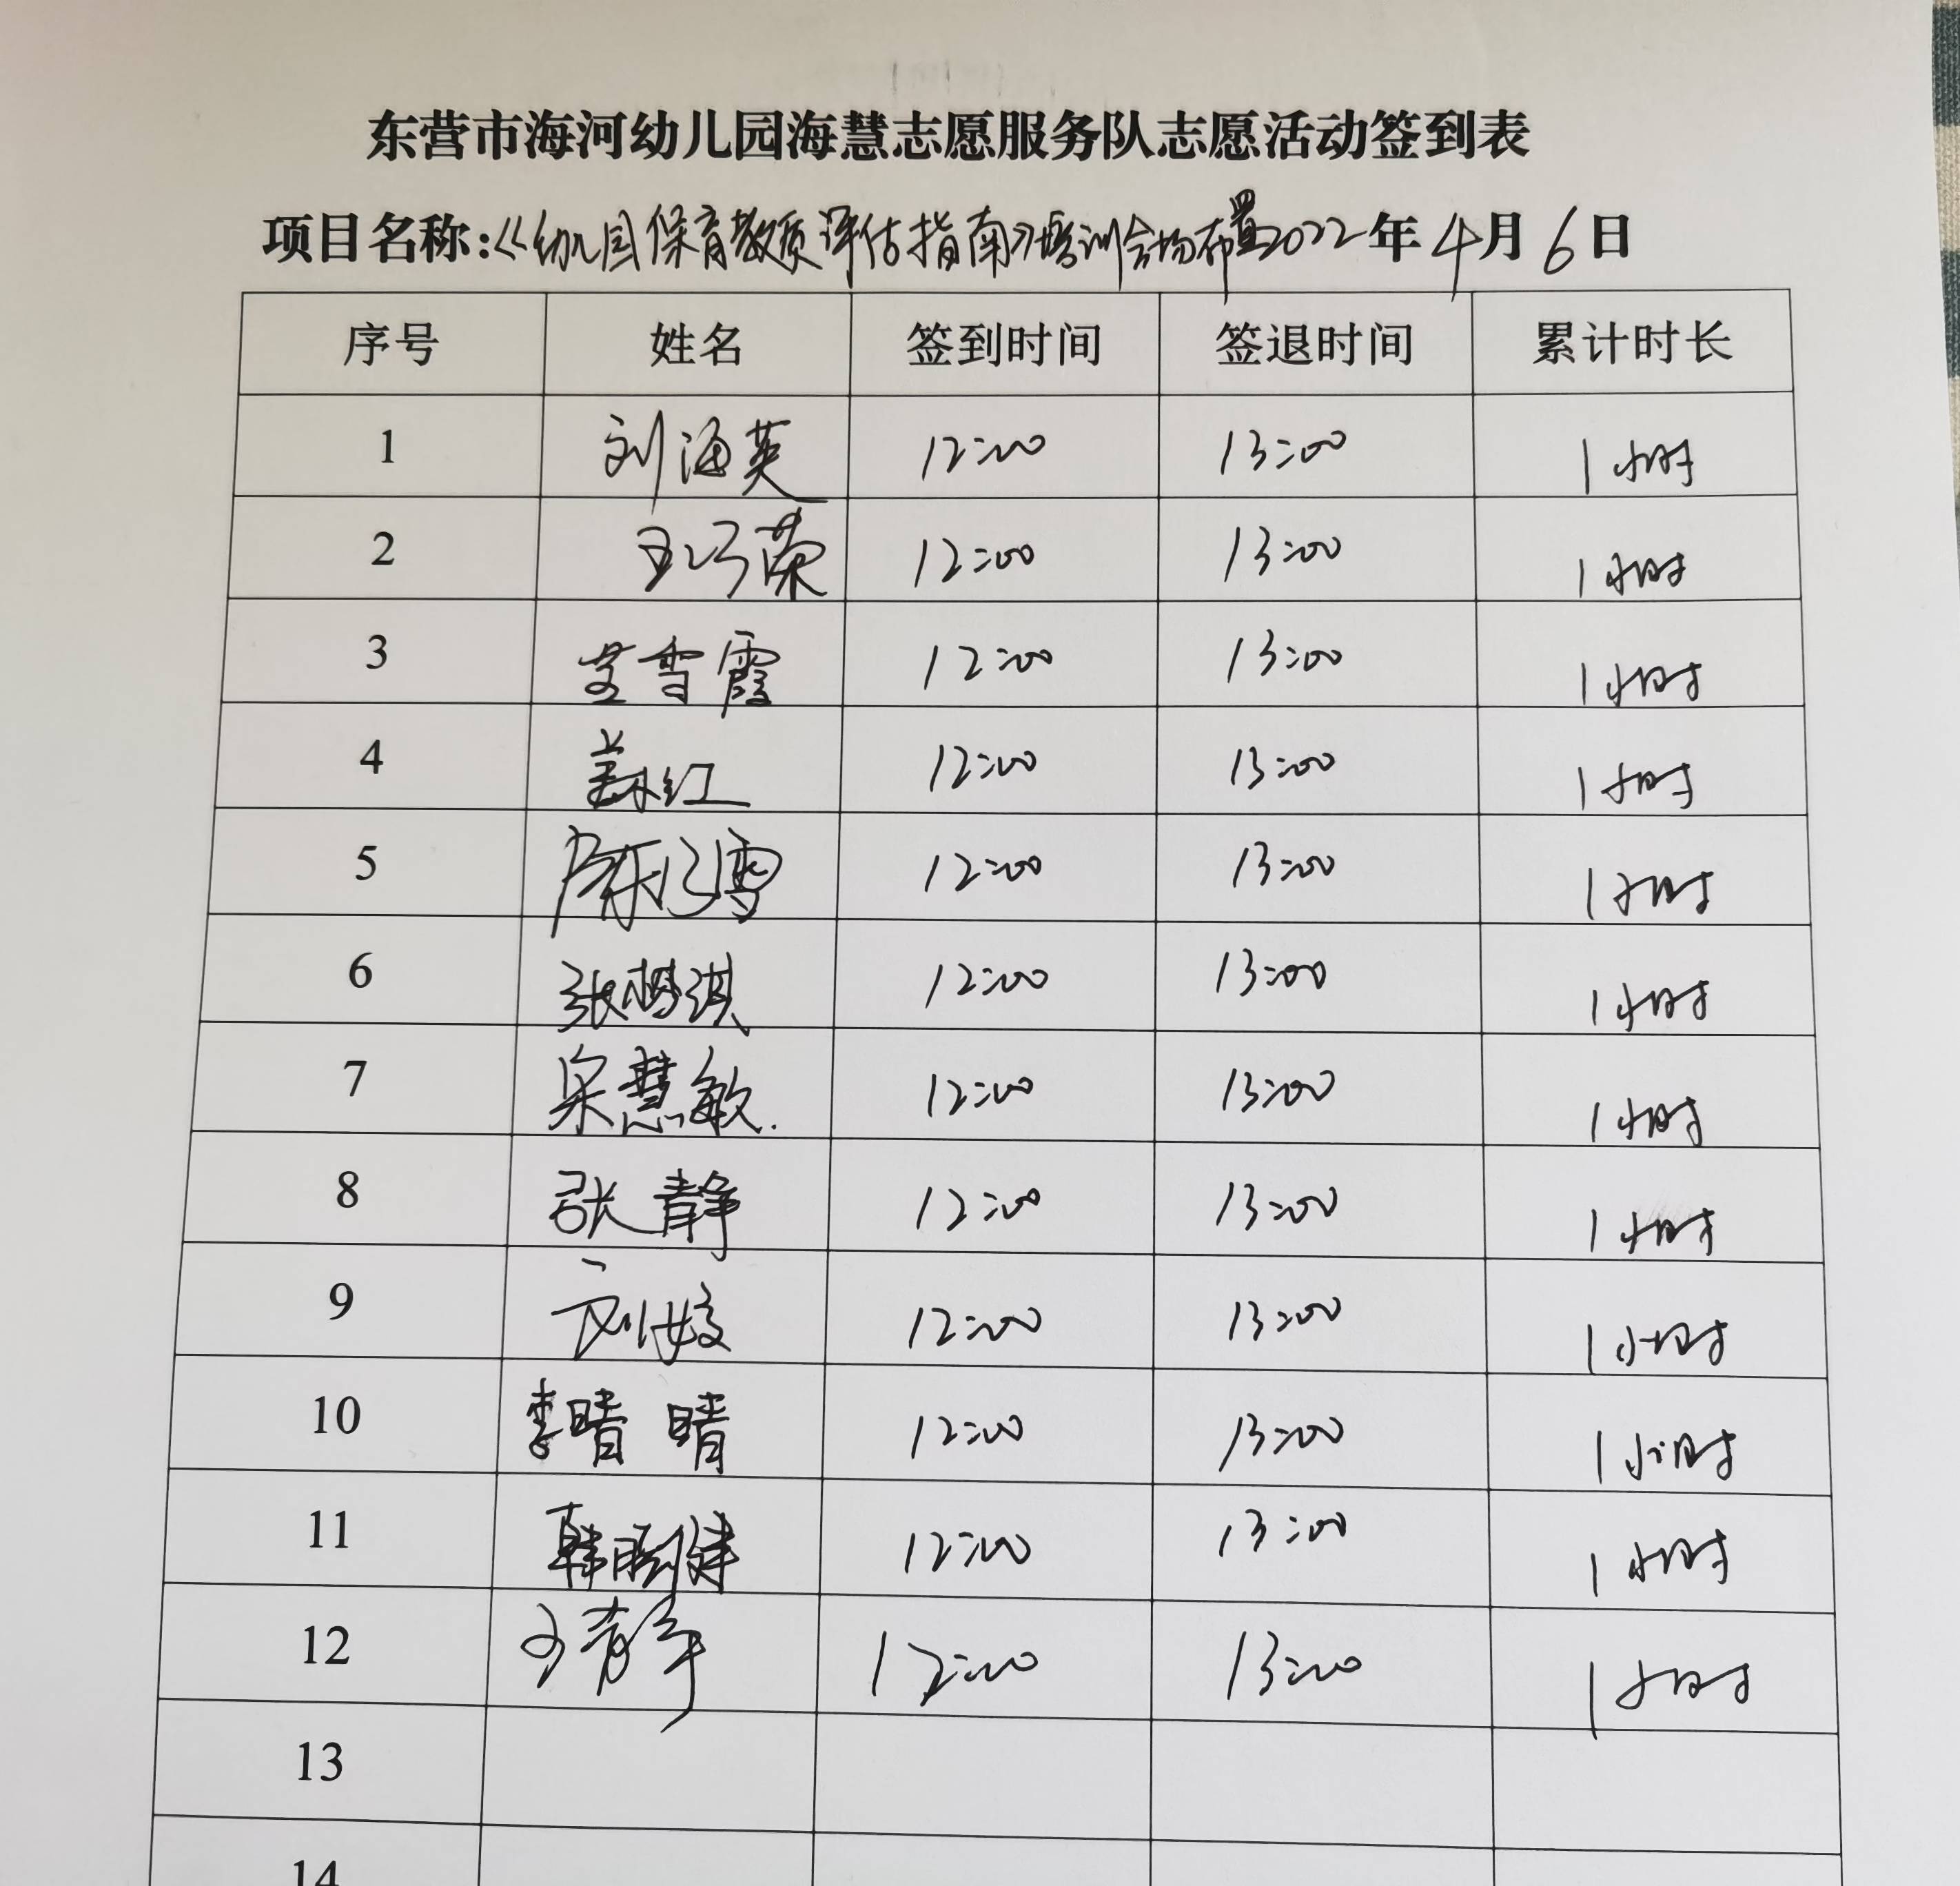 东营市海河幼儿园海慧志愿服务队志愿活动签到表
项目名称:《幼儿园保育教质评估指南》培训会场布置2022年4月6日
序号 姓名 签到时间 签退时间 累计时长
1 刘海英 12:00 13:00 1小时
2 王巧荣 12:00 13:00 1小时
3 艾雪霞 12:00 13:00 1小时
4 姜红 12:00 13:00 1小时
5 12:00 13:00 1小时
6 张梦琪 12:00 13:00 1小时
7 宋慧敏 12:00 13:00 1小时
8 张静 12:00 13:00 1小时
9 刘姣 12:00 13:00 1小时
10 李晴晴 12:00 13:00 1小时
11 韩 健 12:00 13:00 1小时
12 王静 12:00 13:00 1小时
13
14